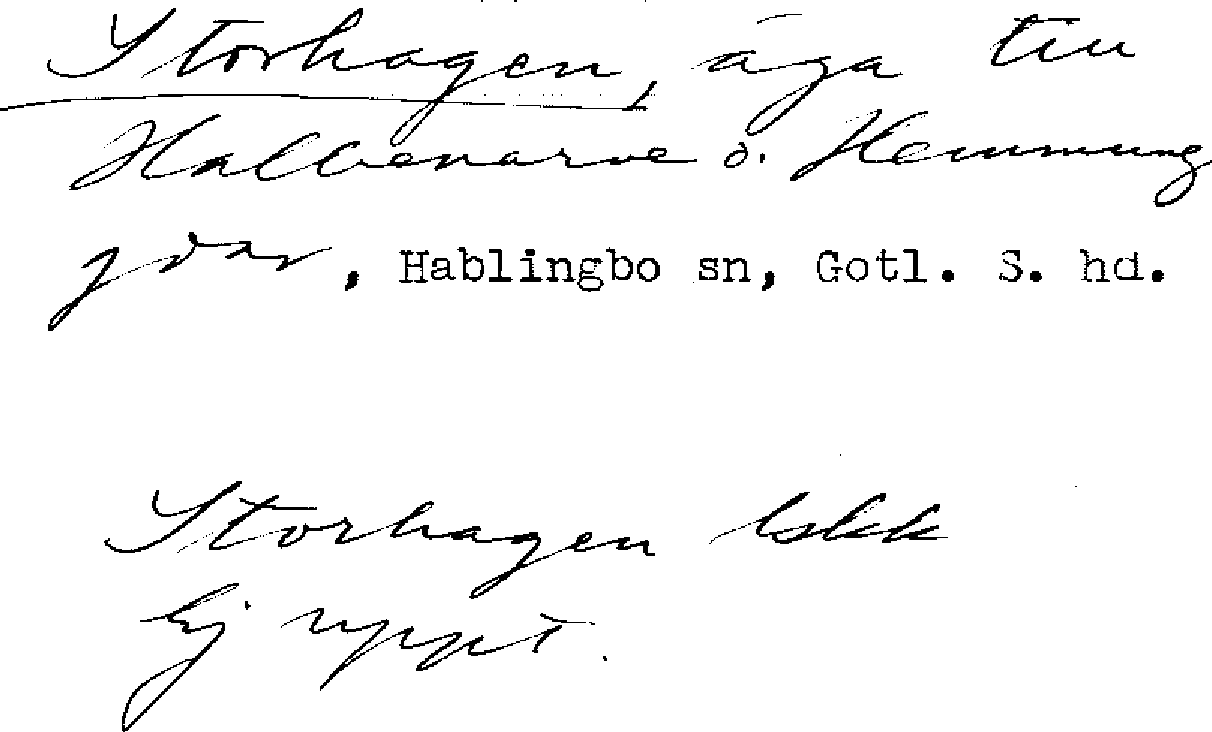 Storhagen, äga till
Halbenarve o. Hemmung
gdar, Hablingbo sn, Gotl. S. hd.
Storhagen lskk
Ej uppt.